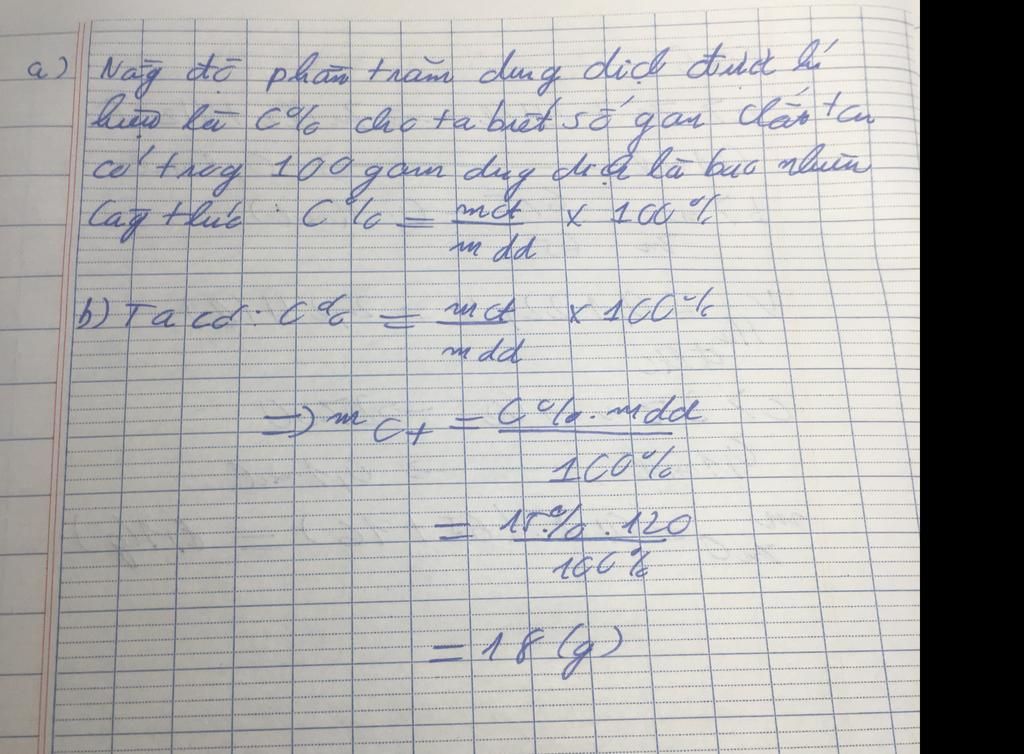 a) Nồng độ phần trăm dung dịch được kí
hiệu là C% cho ta biết số gam chất tan
có trong 100 gam dung dịch là bao nhiêu
Công thức : C% = mct / mdd x 100%
b) Ta có : C% = mct / mdd x 100%
=> mct = C% . mdd / 100%
= 15% . 120 / 100%
= 18 (g)